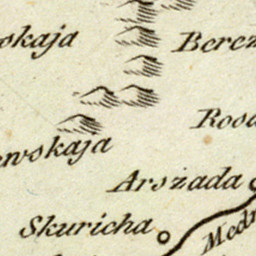 okaja
Berez
Rood
ewskaja
Arszada
Skuricha
Medn